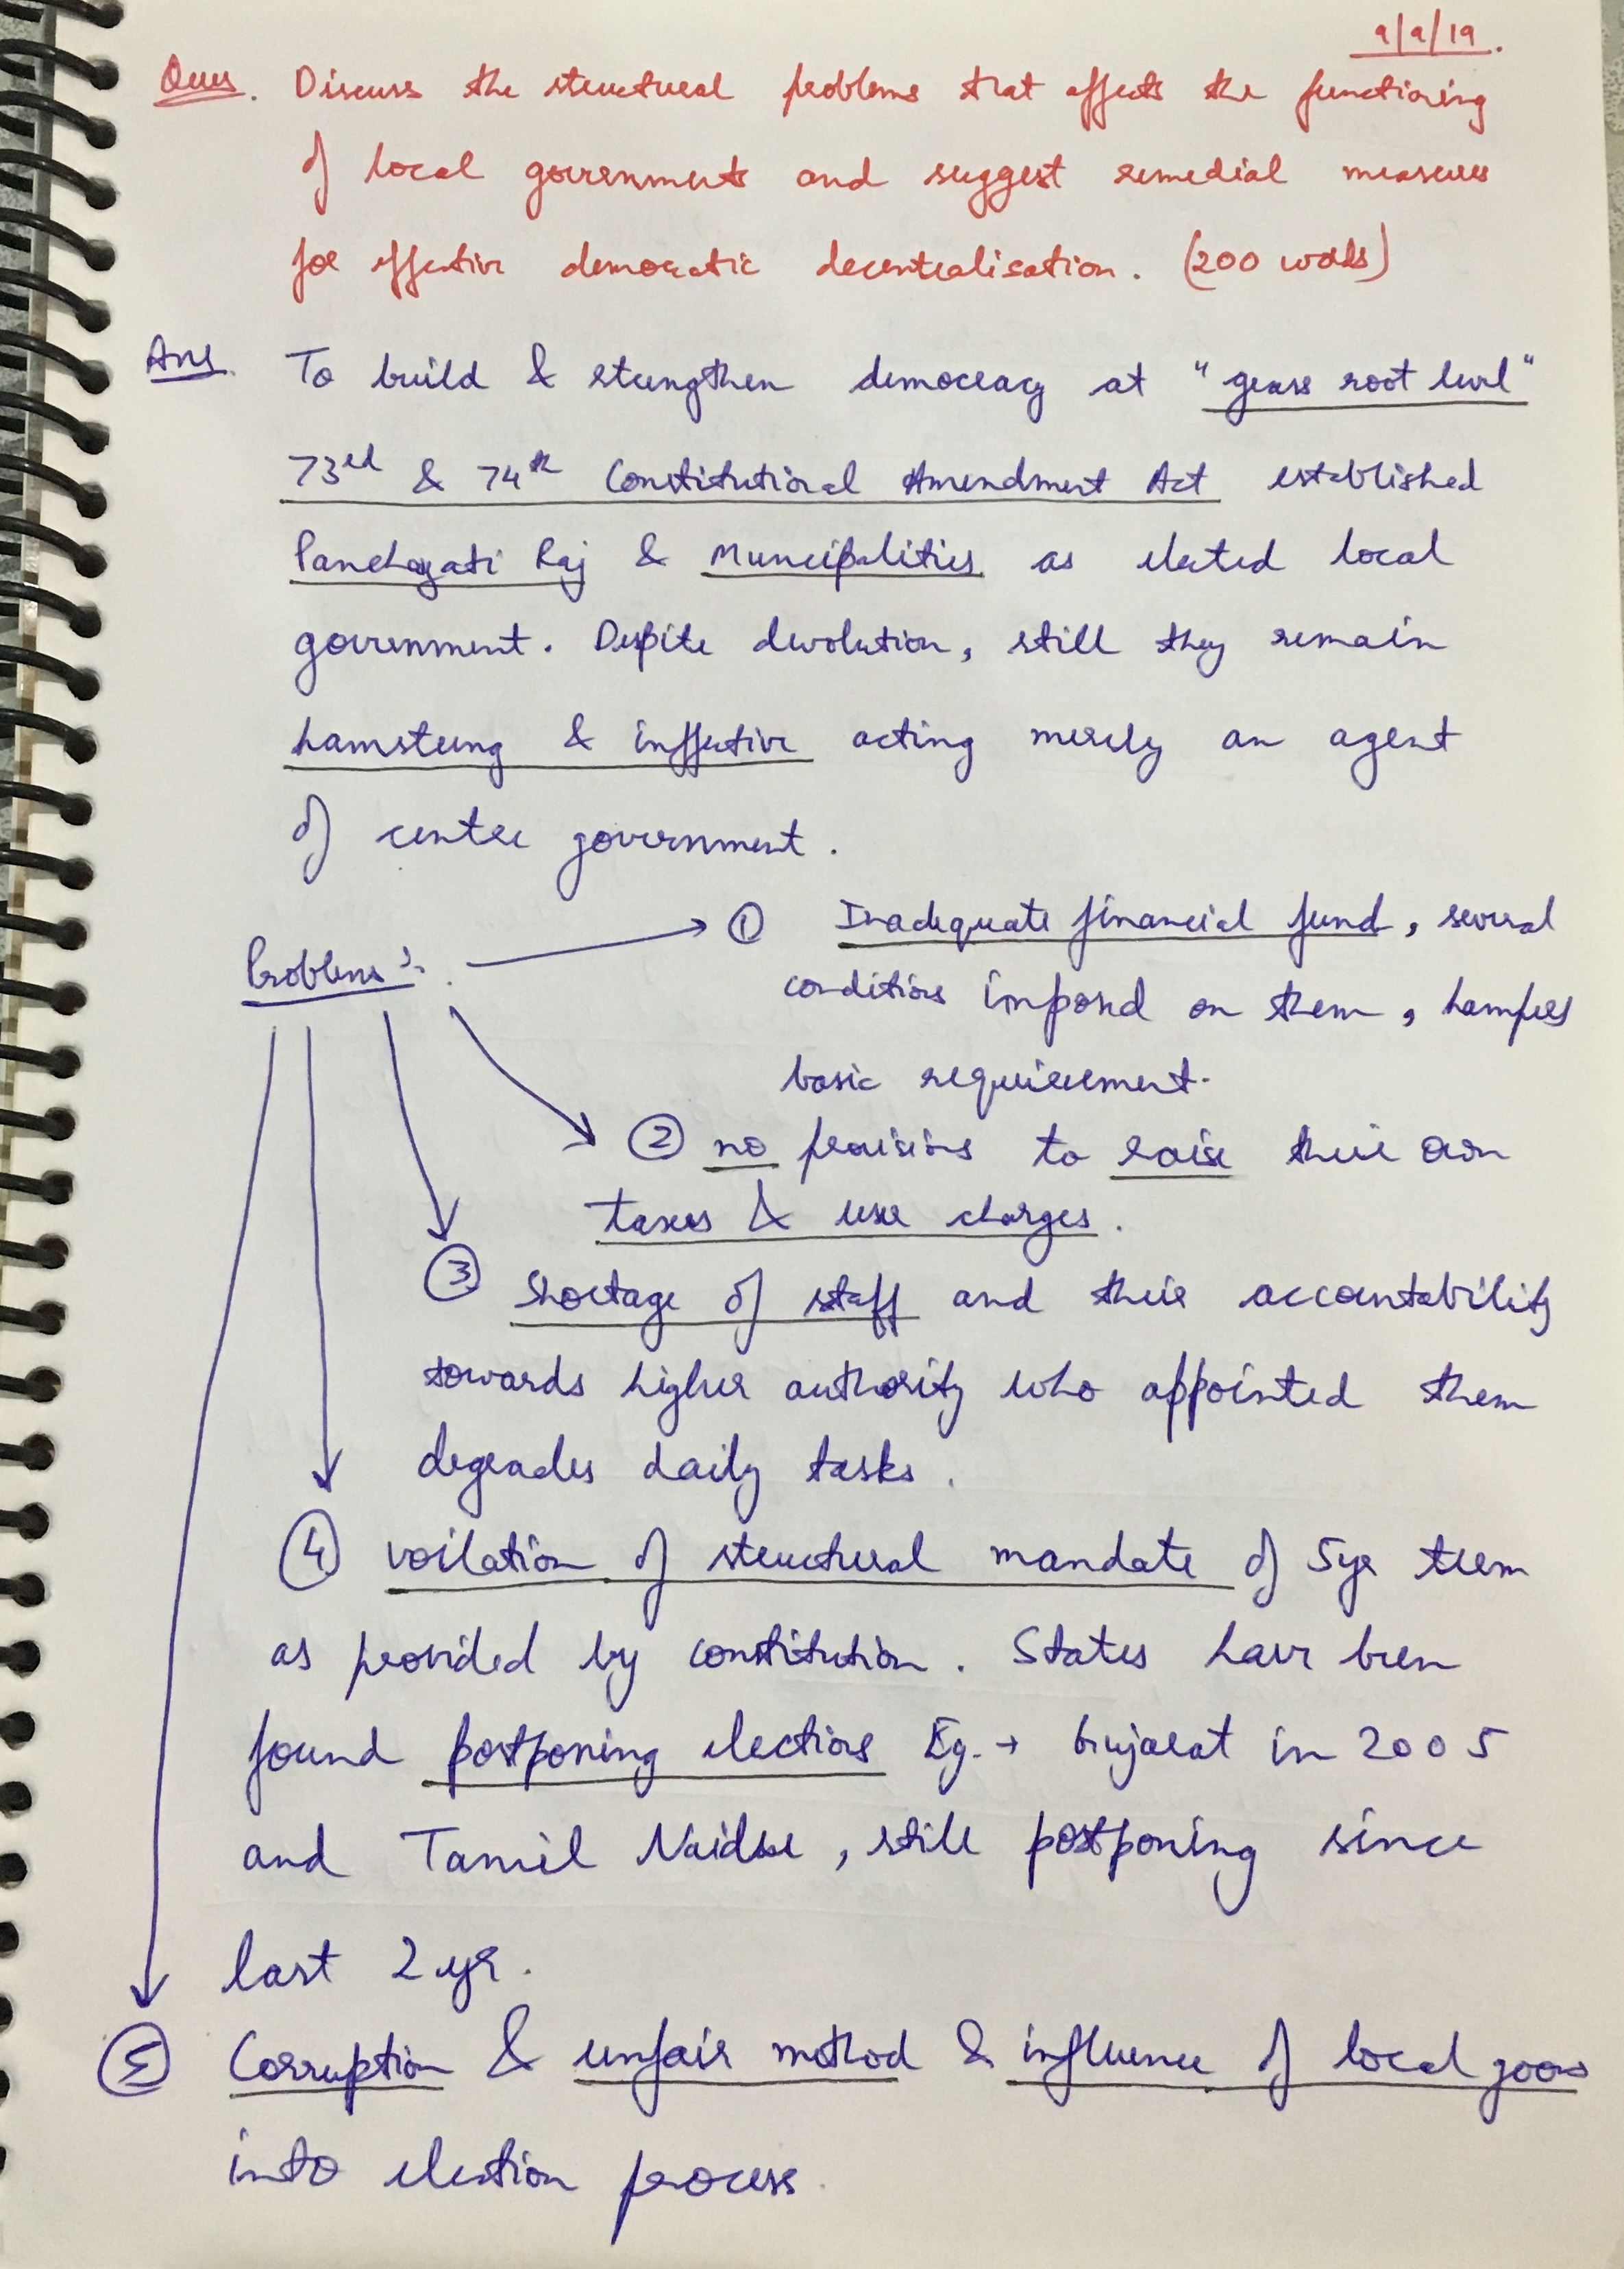 9/9/19.
Ques. Discuss the structural problems that affects the functioning
of local governments and suggest remedial measures
for effective democratic decentralisation. (200 words)
Ans. To build & strengthen democracy at "grass root level"
73rd & 74th Constitutional Amendment Act established
Panchayati Raj & Muncipalities as elected local
government. Despite devolution, still they remain
hamstrung & inffective acting merely an agent
of centre government.
Problems :- → ① Inadequate financial fund, several
conditions imposed on them, hampers
basic requirement.
② no provisions to raise their own
taxes & user charges.
③ Shortage of staff and their accountability
towards higher authority who appointed them
degrades daily tasks.
④ voilation of structural mandate of 5yr term
as provided by constitution. States have been
found postponing elections Eg. → Gujarat in 2005
and Tamil Naidu, still postponing since
last 2 yr.
⑤ Corruption & unfair method & influence of local goons
into election process.